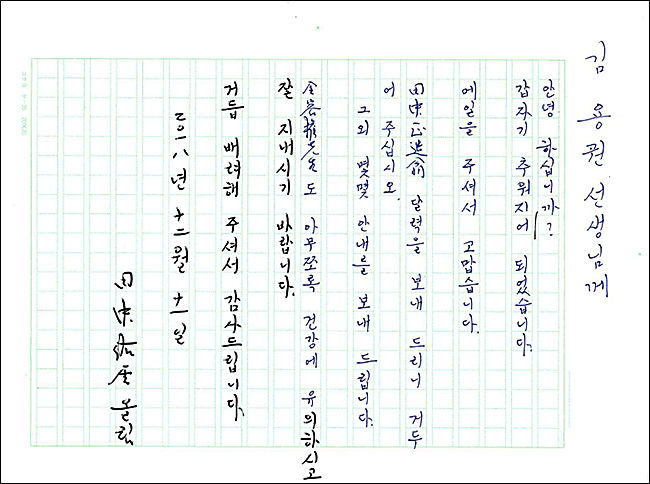 김 용권 선생님께
안녕 하십니까?
갑자기 추워지어 되었습니다.
에일을 주셔서 고맙습니다.
田中正造翁 달력을 보내 드리니 거두
어 주십시오.
그외 몇몇 안내를 보내 드립니다.
金容權先生도 아무쪼록 건강에 유의하시고
잘 지내시기 바랍니다.
거듭 배려해 주셔서 감사드립니다.
二〇一八년 十二월 十一일
田中 올림